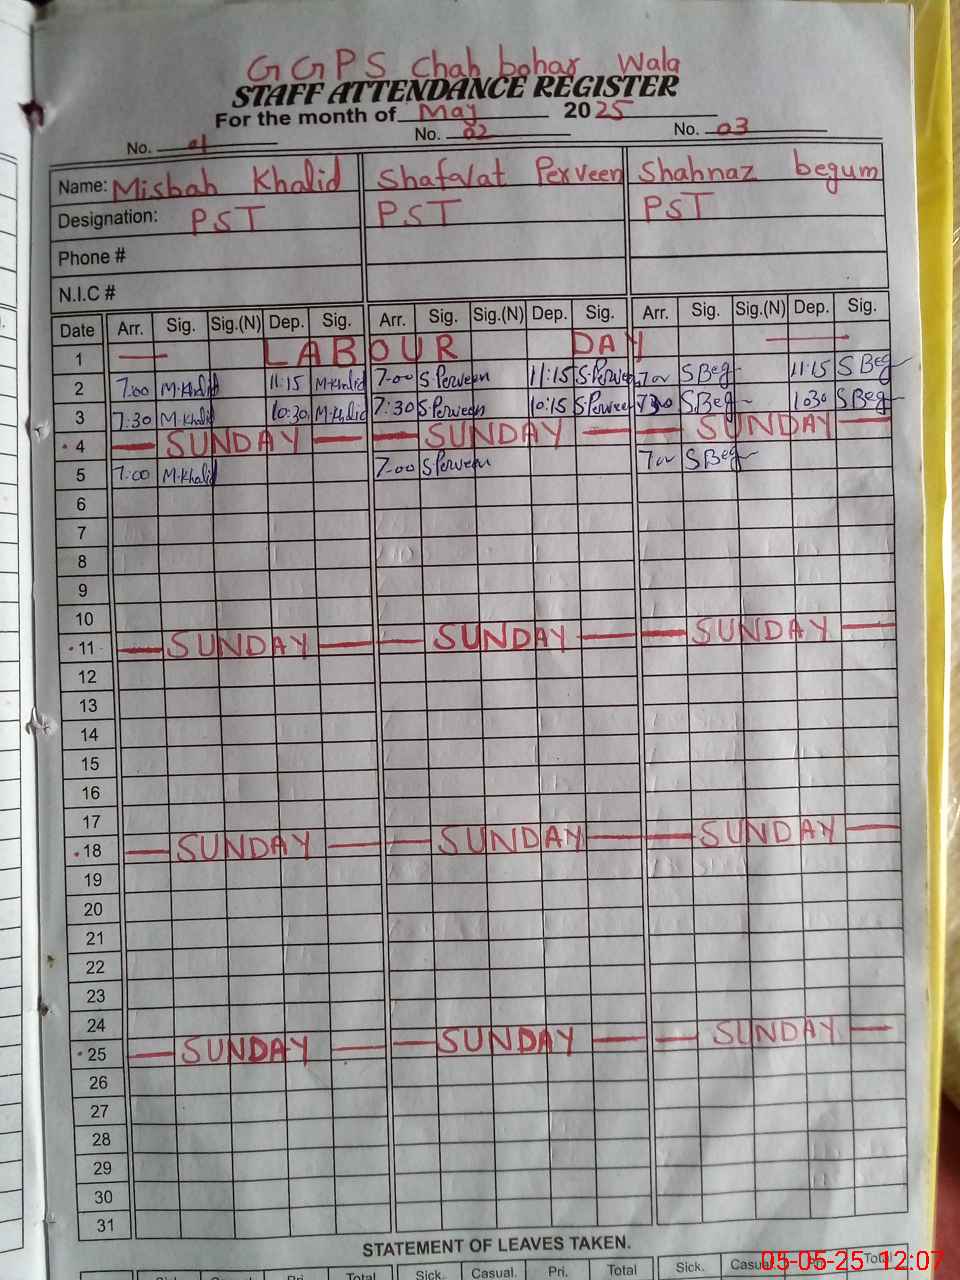 GGPS Chah bohar Wala
STAFF ATTENDANCE REGISTER
For the month of May 2025
No. 01 No. 02 No. 03
Name: Misbah Khalid Shafavat Perveen Shahnaz begum
Designation: PST PST PST
Phone #
N.I.C #
Date Arr. Sig. Sig.(N) Dep. Sig. Arr. Sig. Sig.(N) Dep. Sig. Arr. Sig. Sig.(N) Dep. Sig.
1 — LABOUR DAY —
2 7:00 M.Khalid 11:15 M.Khalid 7-00 S.Perveen 11:15 S.Perveen 700 S Beg 11:15 S Beg
3 7:30 M.Khalid 10:30 M.Khalid 7:30 S.Perveen 10:15 S.Perveen 730 S Beg 1030 S Beg
4 — SUNDAY — — SUNDAY — — SUNDAY —
5 7:00 M.Khalid 7-00 S.Perveen 700 S Beg
6
7
8
9
10
11 — SUNDAY — — SUNDAY — — SUNDAY —
12
13
14
15
16
17
18 — SUNDAY — — SUNDAY — — SUNDAY —
19
20
21
22
23
24
25 — SUNDAY — — SUNDAY — — SUNDAY —
26
27
28
29
30
31
STATEMENT OF LEAVES TAKEN.
Sick. Casual. Pri. Total Sick. Casual. Pri. Total Sick. Casual. Pri. Total
05-05-25 12:07